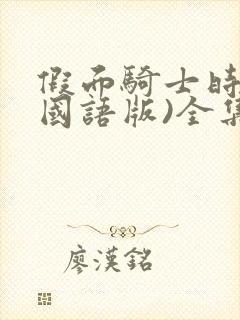 假面騎士時
國語版)全集
廖漢銘